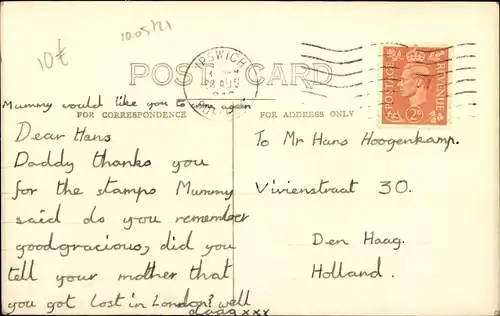 10€
10.05/21
IPSWICH
28 AUG
POST CARD
POSTAGE
REVENUE
2D
Mummy would like you to come again
FOR CORRESPONDENCE
FOR ADDRESS ONLY
Dear Hans
Daddy thanks you
for the stamps Mummy
said do you remember
goodgracious, did you
tell your mother that
you got lost in London? well
daag xxx
To Mr Hans Hoogenkamp.
Vivienstraat 30.
Den Haag.
Holland.